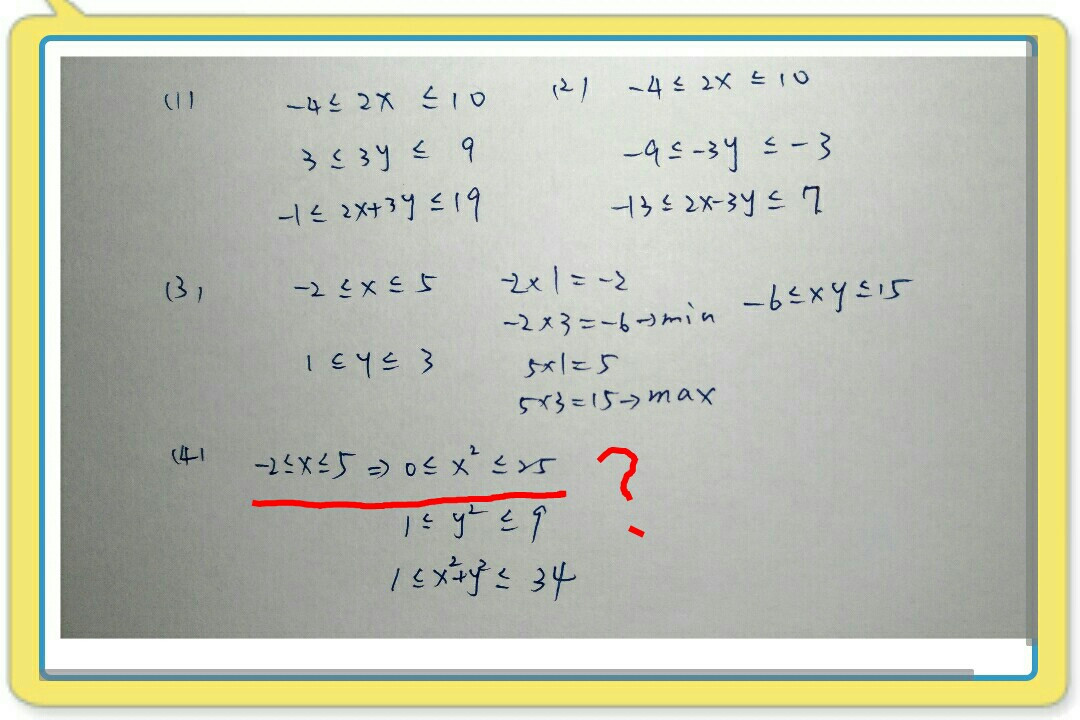 (1) -4 ≤ 2x ≤ 10
3 ≤ 3y ≤ 9
-1 ≤ 2x+3y ≤ 19
(2) -4 ≤ 2x ≤ 10
-9 ≤ -3y ≤ -3
-13 ≤ 2x-3y ≤ 7
(3) -2 ≤ x ≤ 5
1 ≤ y ≤ 3
-2×1=-2
-2×3=-6→min
5×1=5
5×3=15→max
-6≤xy≤15
(4) -2≤x≤5 ⇒ 0≤ x² ≤25 ?
1 ≤ y² ≤ 9
1 ≤ x²+y² ≤ 34